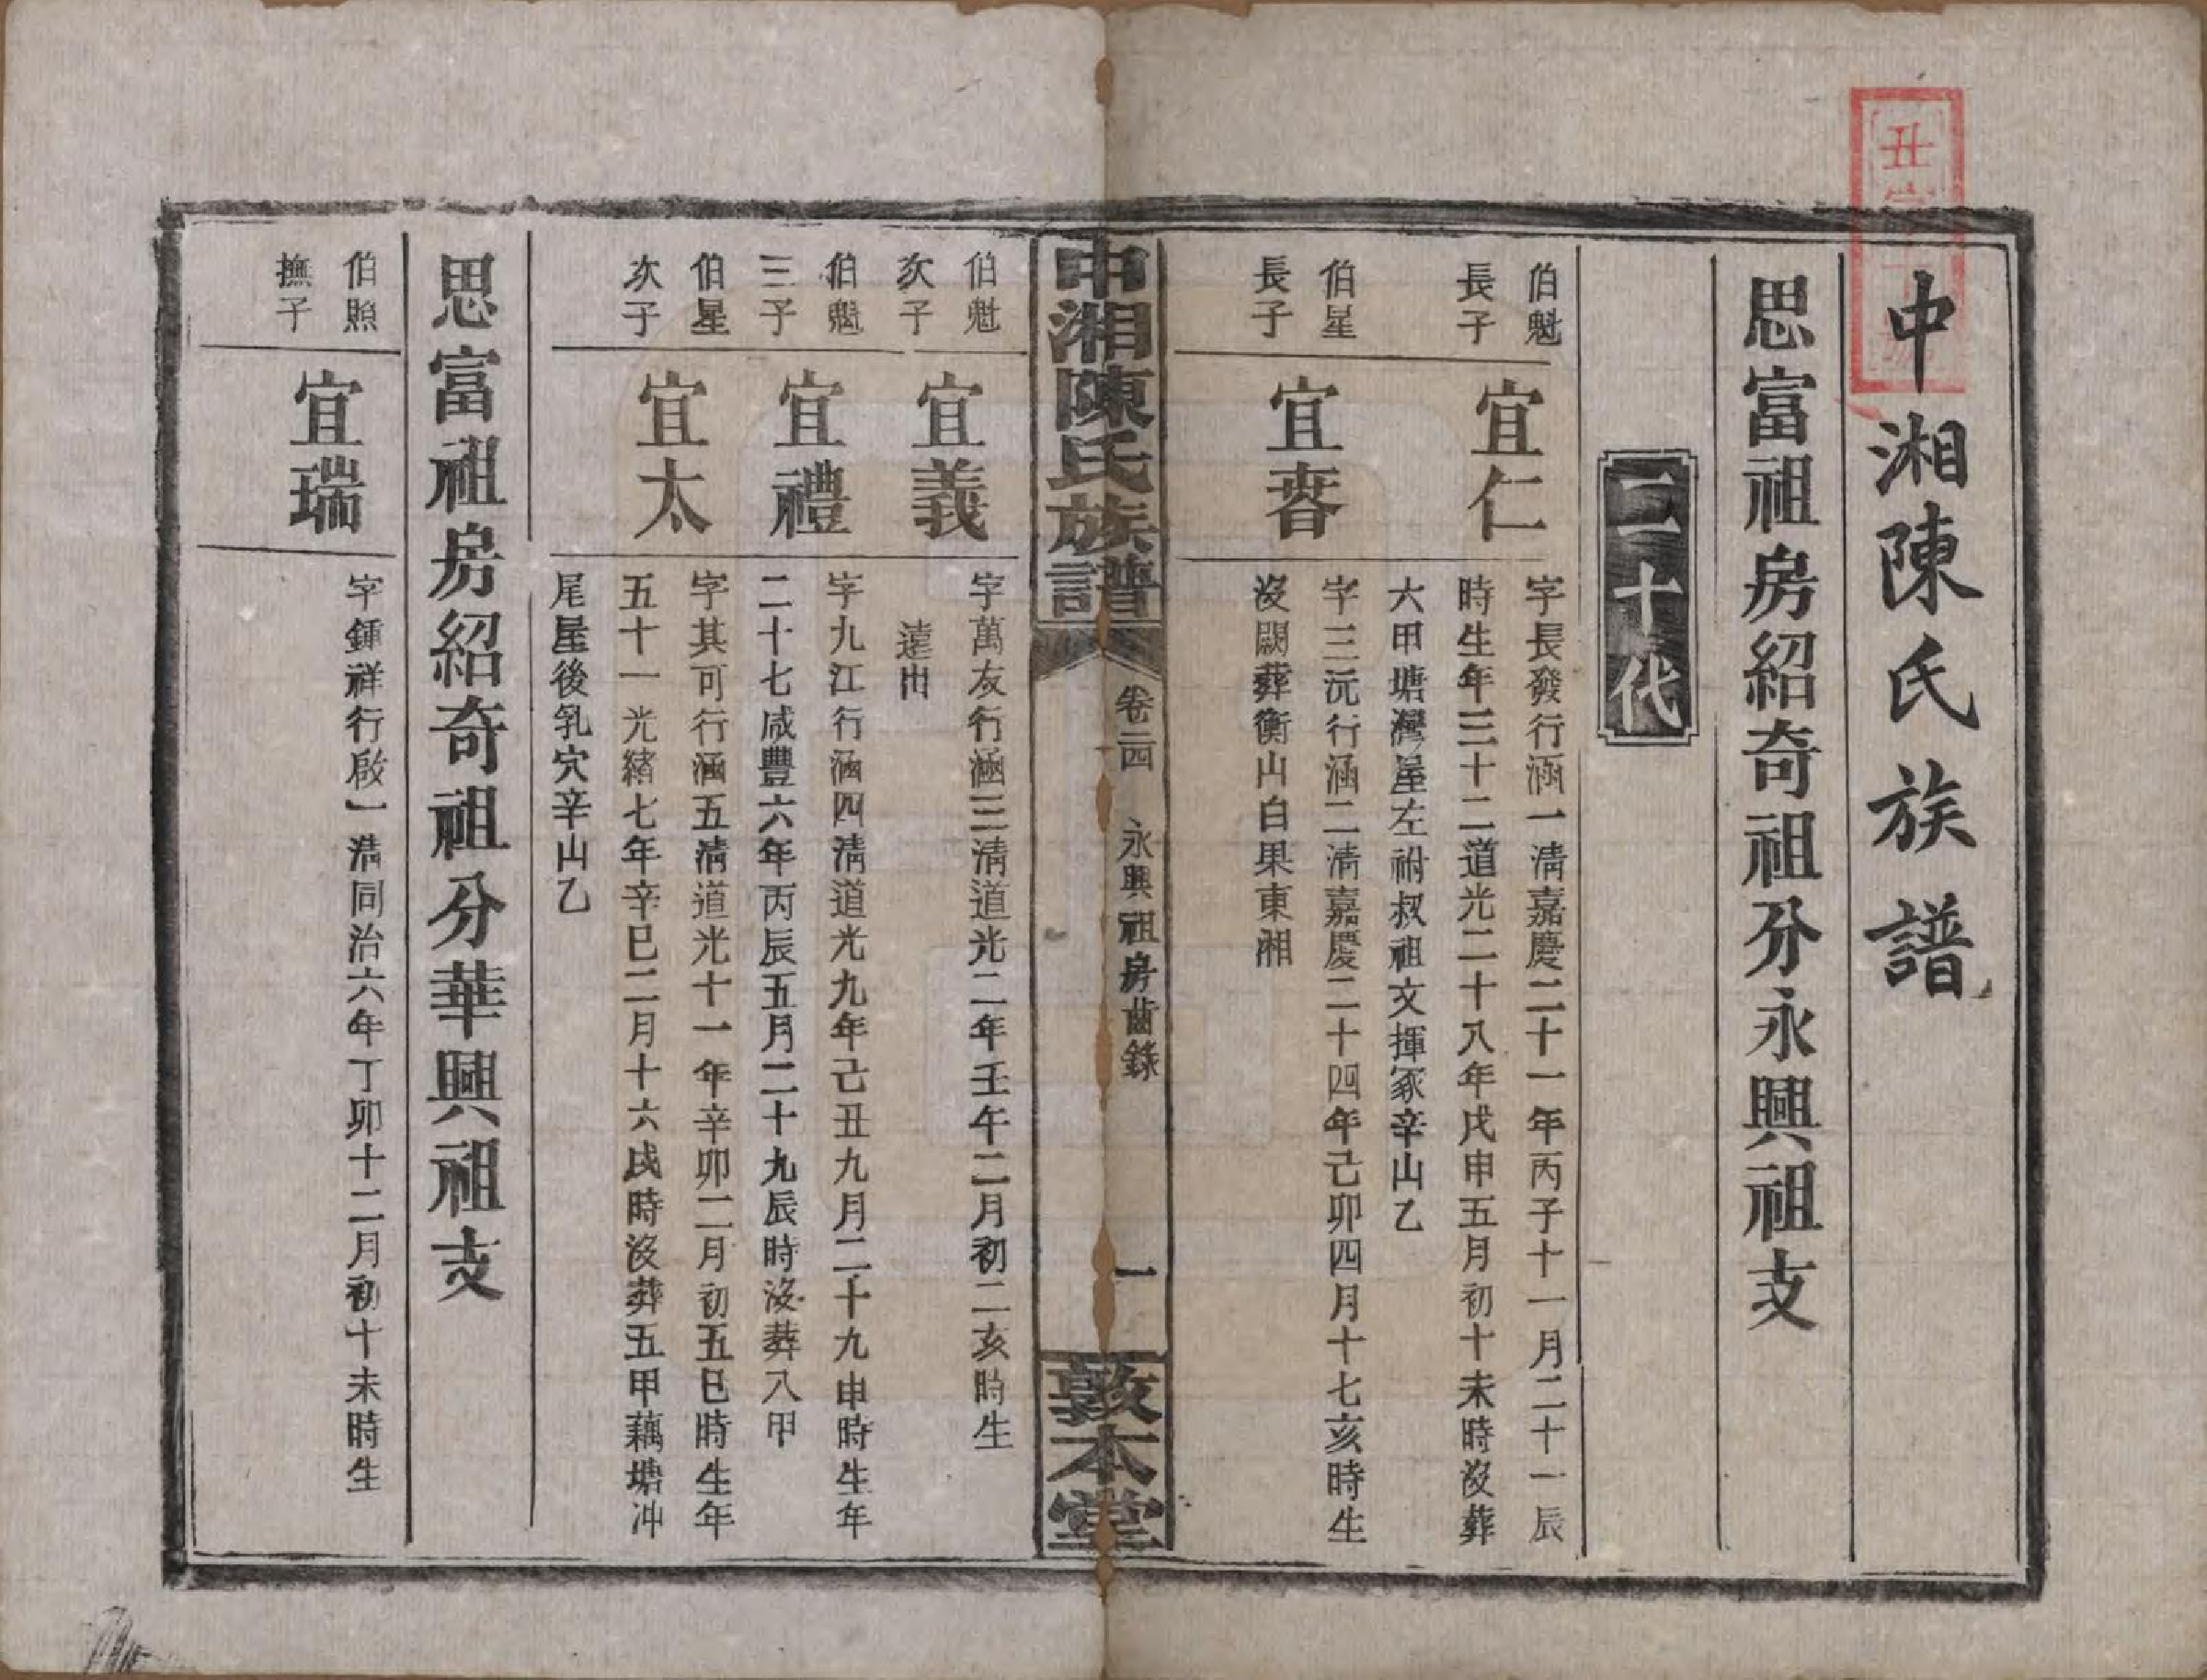 中湘陳氏族譜
思富祖房紹奇祖分永興祖支
二十代
伯魁
長子
宜仁
字長發行涵一清嘉慶二十一年丙子十一月二十一辰
時生年三十二道光二十八年戊申五月初十未時沒葬
六甲塘灣屋左祔叔祖文揮冢辛山乙
伯星
長子
宜春
字三沅行涵二清嘉慶二十四年己卯四月十七亥時生
沒闕葬衡山白果東湘
中湘陳氏族譜
卷二四
永興祖房齒錄
一
敦本堂
伯魁
次子
宜義
字萬友行涵三清道光二年壬午二月初二亥時生
遠出
伯魁
三子
宜禮
字九江行涵四清道光九年己丑九月二十九申時生年
二十七咸豐六年丙辰五月二十九辰時沒葬八甲
伯星
次子
宜太
字其可行涵五清道光十一年辛卯二月初五巳時生年
五十一光緒七年辛巳二月十六戌時沒葬五甲藕塘冲
尾屋後乳穴辛山乙
思富祖房紹奇祖分華興祖支
伯照
撫子
宜瑞
字鍾祥行啟一清同治六年丁卯十二月初十未時生
丑字
號